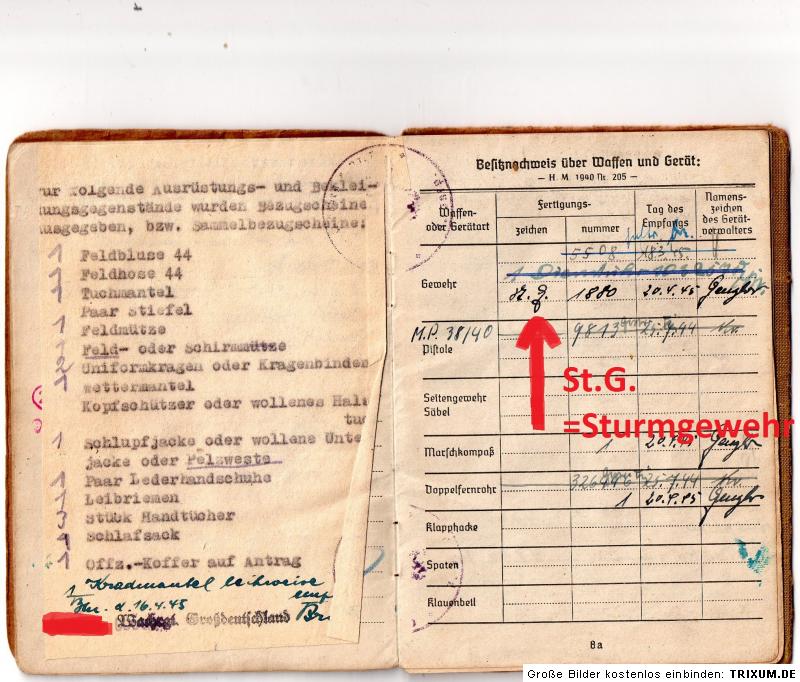 zur folgende Ausrüstungs- und Beklei-
dungsgegenstände wurden Bezugscheine
ausgegeben, bzw. Sammelbezugscheine:
1 Feldbluse 44
1 Feldhose 44
1 Tuchmantel
Paar Stiefel
1 Feldmütze
1 Feld- oder Schirmmütze
2 Uniformkragen oder Kragenbinden
1 wettermantel
Kopfschützer oder wollenes Hals
tuc
1 Schlupfjacke oder wollene Unte
jacke oder Pelzweste
1 Paar Lederhandschuhe
1 Leibriemen
3 Stück Handtücher
1 Schlafsack
1 Offz.-Koffer auf Antrag
1 Kradmantel leihweise
d. 16.4.45
Wachrgt. Großdeutschland
Besitznachweis über Waffen und Gerät:
— H. M. 1940 Nr. 205 —
Waffen-
oder Gerätart
Fertigungs-
zeichen
nummer
Tag des
Empfangs
Namens-
zeichen
des Gerät-
verwalters
5508 18.3.45.
Gewehr
1880 20.4.45
M.P. 38/40 9813
Pistole
St.G.
=Sturmgewehr
Seitengewehr
Säbel
Marschkompaß 1 20.4.45
Doppelfernrohr
1 20.4.45
Klapphacke
Spaten
Klauenbeil
8a
Große Bilder kostenlos einbinden: TRIXUM.DE